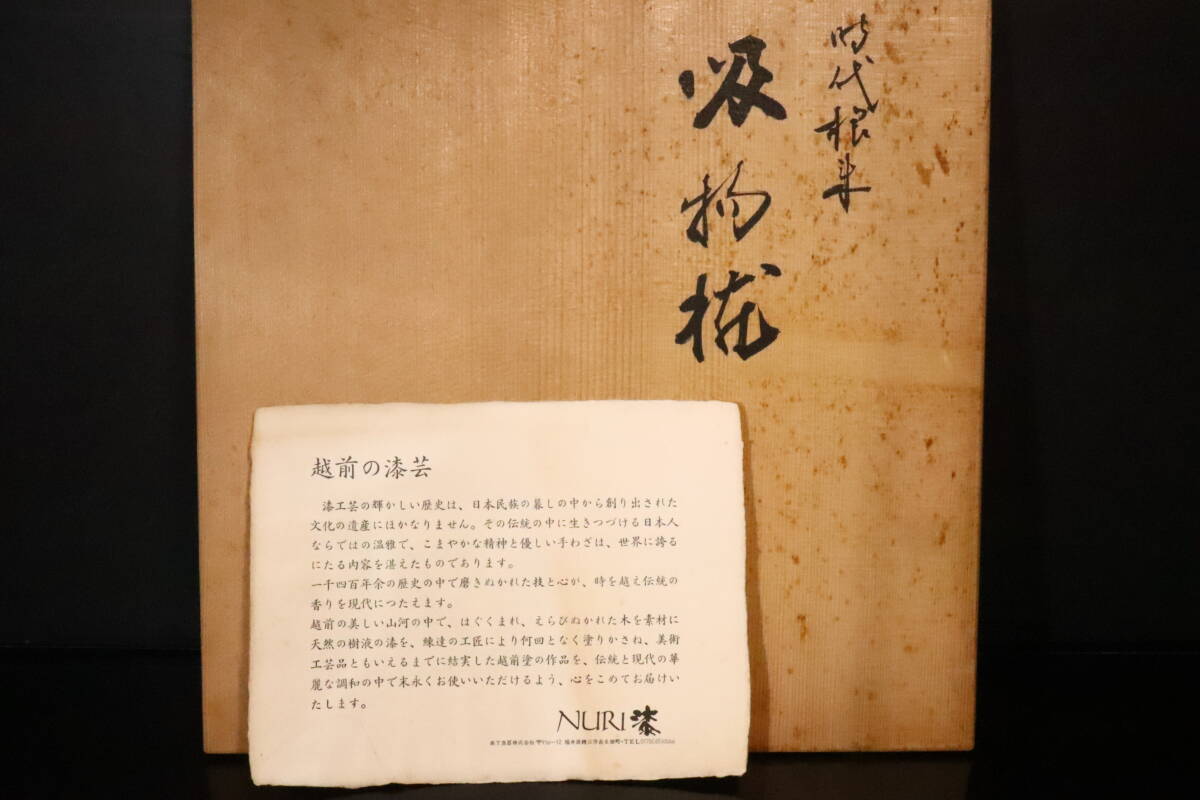 時代根来
吸物椀
越前の漆芸
漆工芸の輝かしい歴史は、日本民族の暮しの中から創り出された
文化の遺産にほかなりません。その伝統の中に生きつづける日本人
ならではの温雅で、こまやかな精神と優しい手わざは、世界に誇る
にたる内容を湛えたものであります。
一千四百年余の歴史の中で磨きぬかれた技と心が、時を越え伝統の
香りを現代につたえます。
越前の美しい山河の中で、はぐくまれ、えらびぬかれた木を素材に
天然の樹液の漆を、練達の工匠により何回となく塗りかさね、美術
工芸品ともいえるまでに結実した越前塗の作品を、伝統と現代の華
麗な調和の中で末永くお使いいただけるよう、心をこめてお届けい
たします。
NURI漆
漆器株式会社 〒916-12 福井県鯖江市 TEL